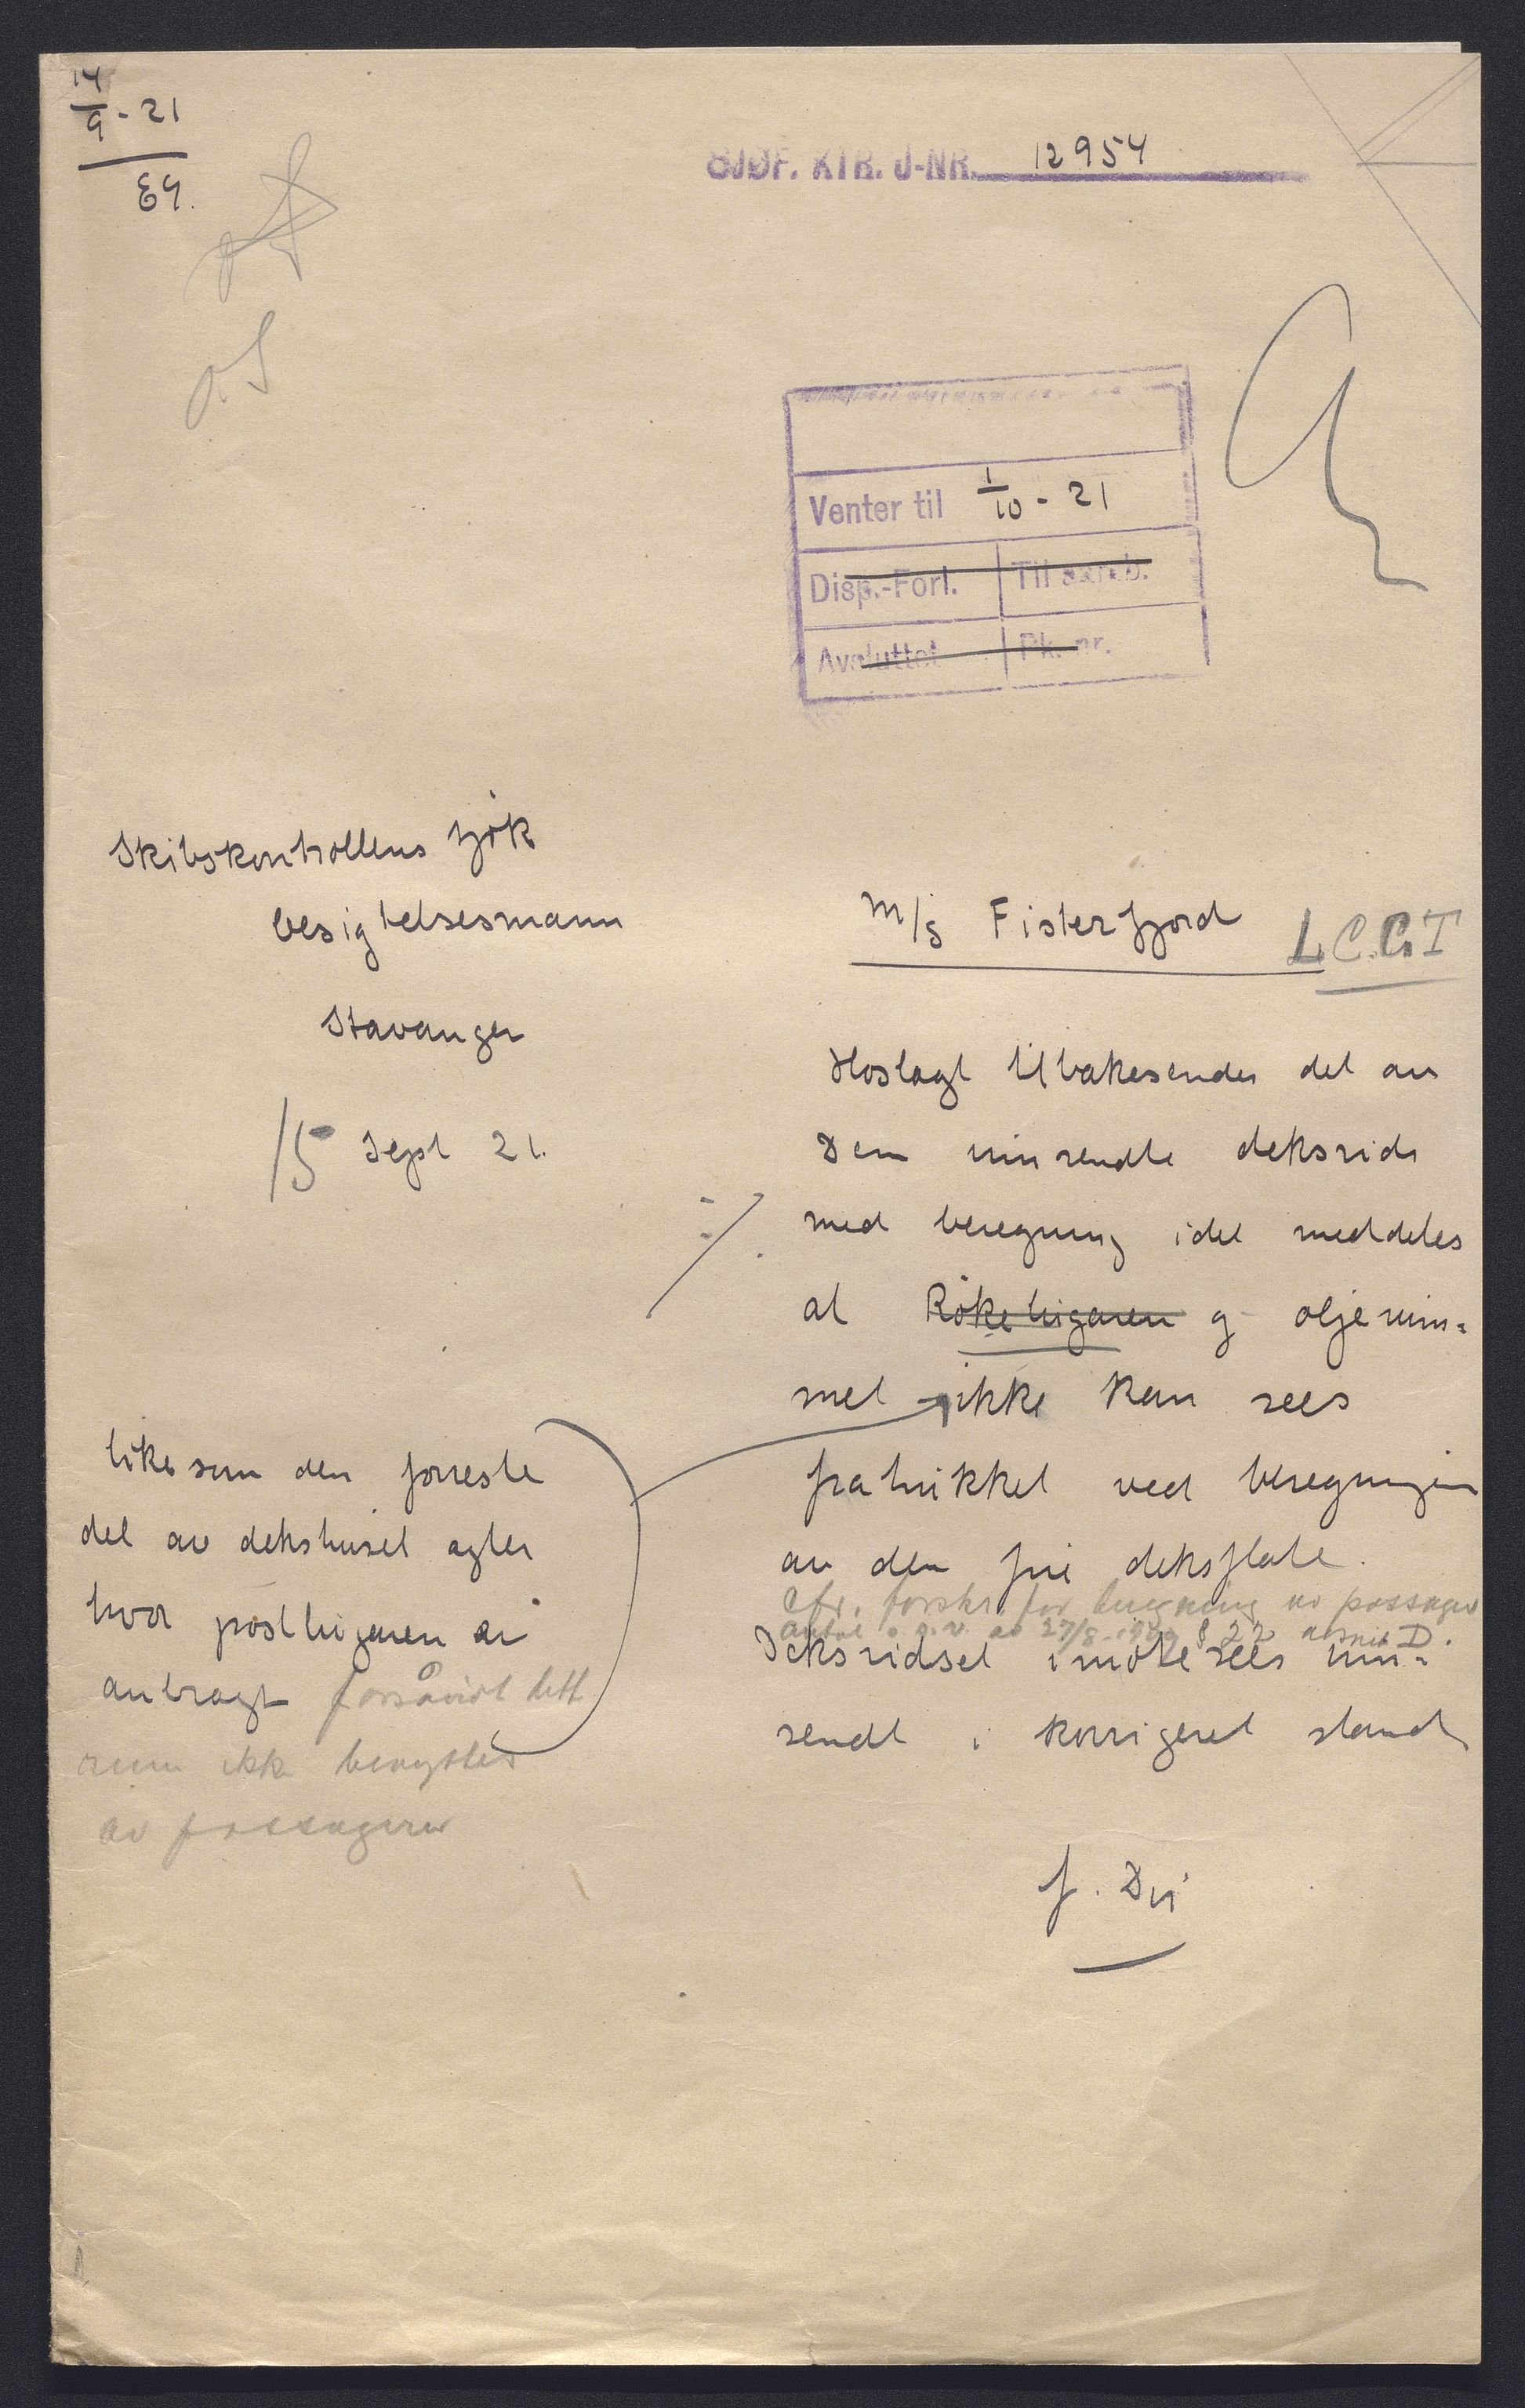 14/9-21
Eg.
SJØF. KTR. J-NR. 12954
Venter til 1/10-21
Disp.-Forl. Til saksb.
Avsluttet Pk. nr.
Skibskontrollens sjøk
besigtelsesmann
Stavanger
15 Sept 21.
m/s Fisterfjord LCGT
Hoslagt tilbakesendes det av
Dem innsendte deksrids
med beregning idet meddeles
at Røkelugaren og oljerum-
met ikke kan sees
fratrukket ved beregningen
av den frie deksflate.
Cfr. forskr. for beregning av passager
antal o.g.v. av 27/8-1909 § 22 avsnit D.
Deksridset imøtesees inn-
sendt i korrigeret stand
likesom den forreste
del av dekshuset agter
hvor postlugaren er
anbragt forsåvidt dett
rum ikke benyttes
av passagerer
f. Dir